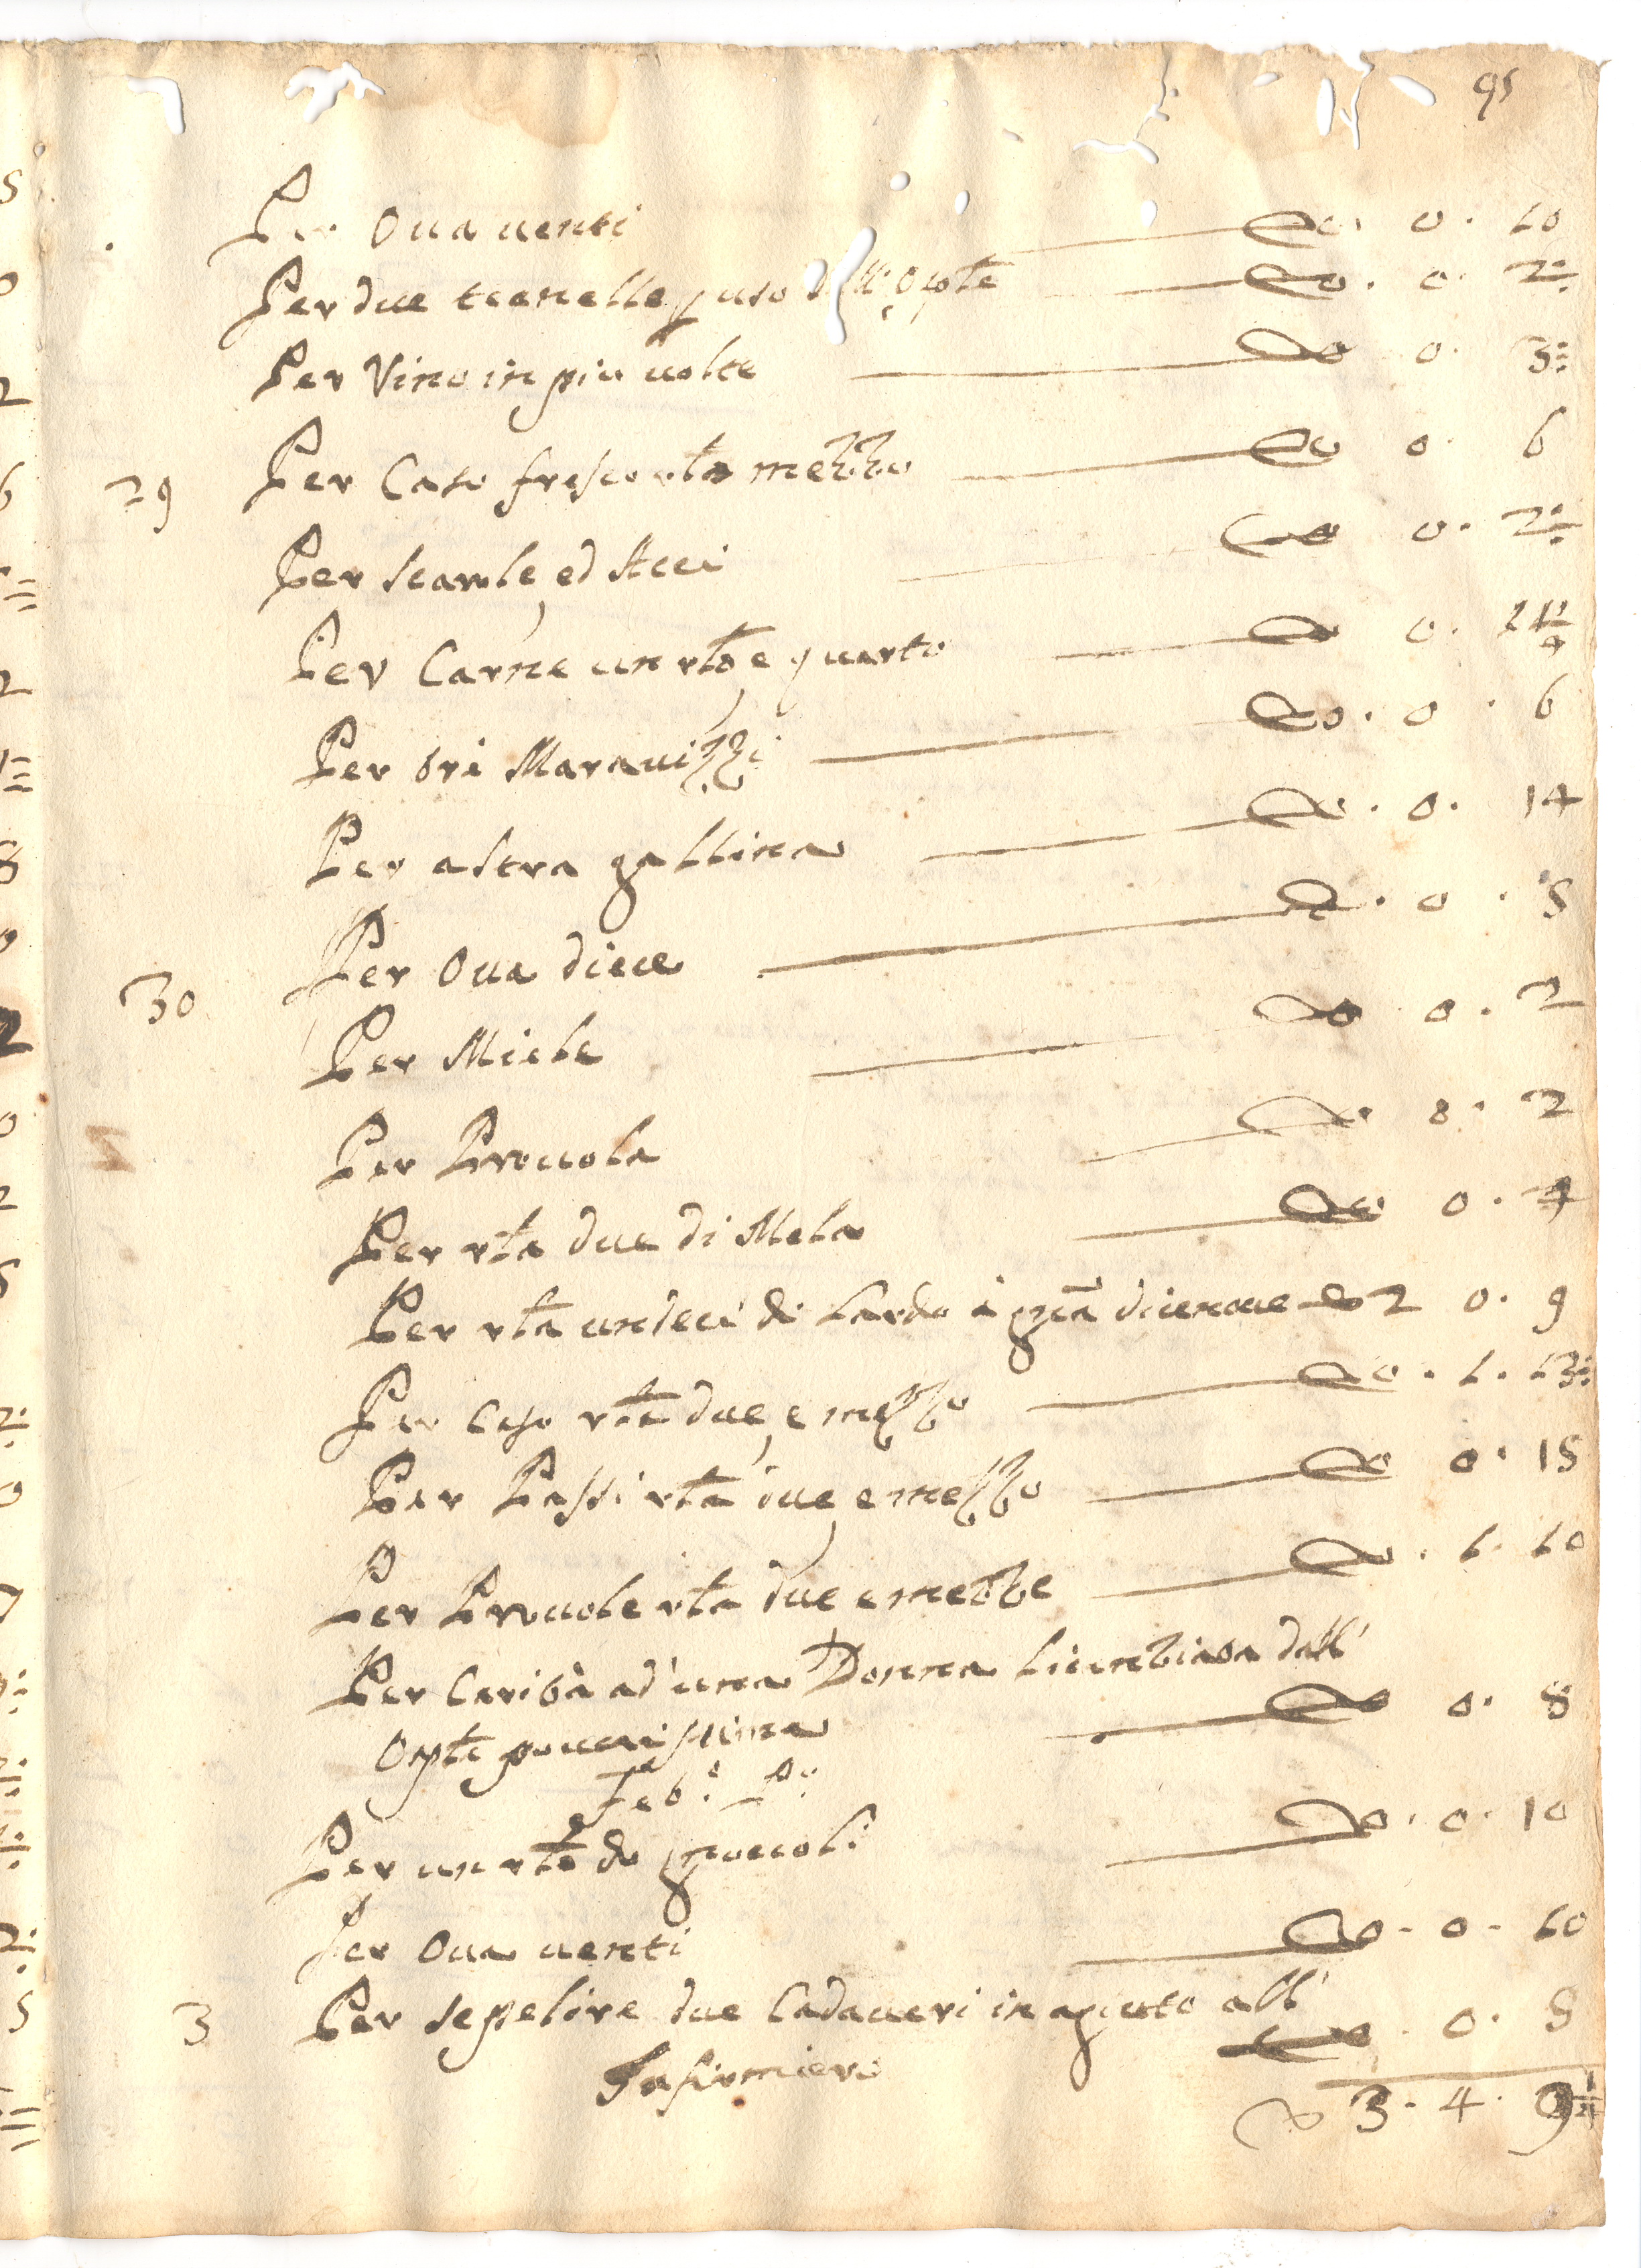 95
Per Oua uenti 0. 10
Per due tianelle p uso dell' Osple 0. 2½
Per Vino in piu uolte 0. 3½
29 Per Caso fresco rla mezzo 0. 6
Per Scarole, ed Acci 0. 2½
Per Carne un rlo, e quarto 0. 11¼
Per tre Marauizzi 0. 6
Per altra gallina 0. 14
30 Per Oua diece 0. 5
Per Miele 0. 2
Per Prouola 0. 2
Per rla due di Mela 0. 4
Per rla undeci di Lardo à gna dicenoue 2 0. 9
Per Caso rla due, e mezzo 1. 13½
Per Passi rla due, e mezzo 0. 15
Per Prouole rla due e mezze 1. 10
Per Carità ad'una Donna licentiata dall'
Osple pouerissima 0. 8
Feb.
Per un rlo de gnoccoli 0. 10
Per Oua uenti 0. 10
3 Per sepelire due Cadaueri in agiuto all'
Infirmieri 0. 5
3. 4. 9